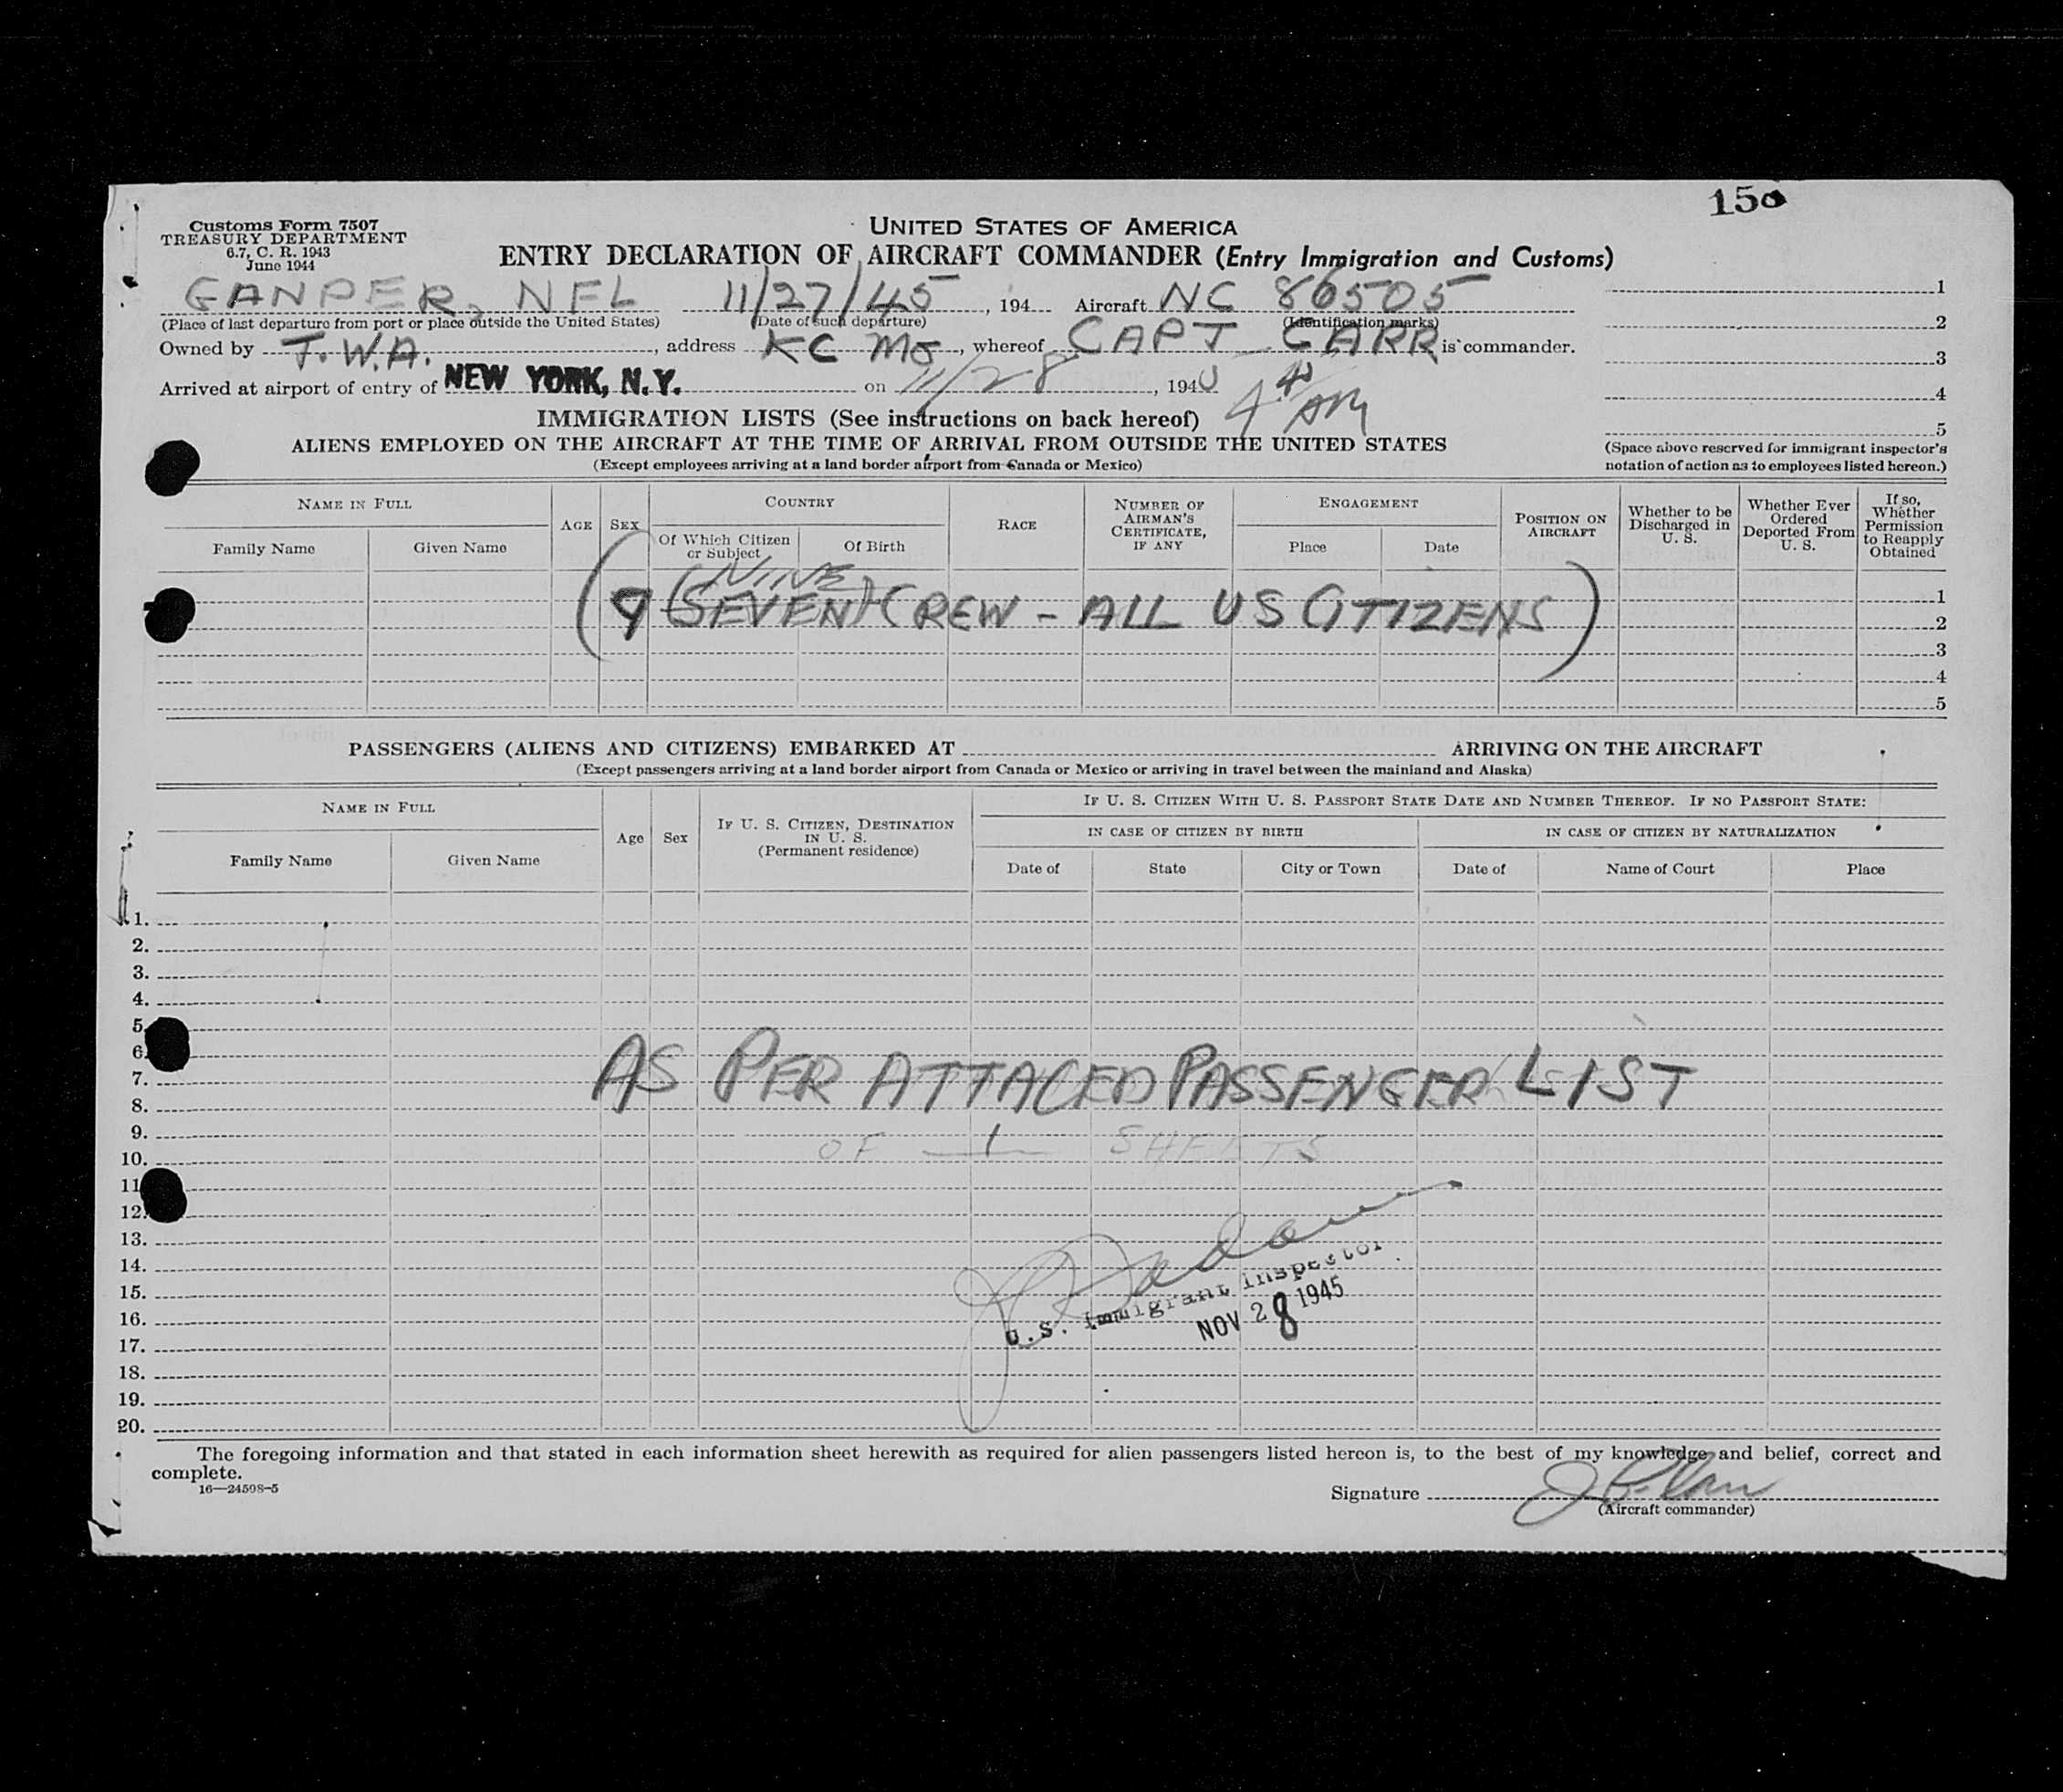 150
Customs Form 7507
TREASURY DEPARTMENT
6.7, C. R. 1943
June 1944
UNITED STATES OF AMERICA
ENTRY DECLARATION OF AIRCRAFT COMMANDER (Entry Immigration and Customs)
GANDER, NFL 11/27/45, 194 Aircraft NC 86505
(Place of last departure from port or place outside the United States) (Date of such departure) (Identification marks)
Owned by T.W.A., address KC MO, whereof CAPT CARR is commander.
Arrived at airport of entry of NEW YORK, N.Y. on 11/28, 194
4 40 AM
1
2
3
4
5
(Space above reserved for immigrant inspector's
notation of action as to employees listed hereon.)
IMMIGRATION LISTS (See instructions on back hereof)
ALIENS EMPLOYED ON THE AIRCRAFT AT THE TIME OF ARRIVAL FROM OUTSIDE THE UNITED STATES
(Except employees arriving at a land border airport from Canada or Mexico)
NAME IN FULL
Family Name
Given Name
AGE
SEX
COUNTRY
Of Which Citizen
or Subject
Of Birth
RACE
NUMBER OF
AIRMAN'S
CERTIFICATE,
IF ANY
ENGAGEMENT
Place
Date
POSITION ON
AIRCRAFT
Whether to be
Discharged in
U. S.
Whether Ever
Ordered
Deported From
U. S.
If so,
Whether
Permission
to Reapply
Obtained
NINE
(9 (SEVEN) CREW - ALL US CITIZENS)
1
2
3
4
5
PASSENGERS (ALIENS AND CITIZENS) EMBARKED AT ARRIVING ON THE AIRCRAFT
(Except passengers arriving at a land border airport from Canada or Mexico or arriving in travel between the mainland and Alaska)
NAME IN FULL
Family Name
Given Name
Age
Sex
IF U. S. CITIZEN, DESTINATION
IN U. S.
(Permanent residence)
IF U. S. CITIZEN WITH U. S. PASSPORT STATE DATE AND NUMBER THEREOF. IF NO PASSPORT STATE:
IN CASE OF CITIZEN BY BIRTH
IN CASE OF CITIZEN BY NATURALIZATION
Date of
State
City or Town
Date of
Name of Court
Place
1.
2.
3.
4.
5.
6.
7.
8.
9.
10.
11
12.
13.
14.
15.
16.
17.
18.
19.
20.
AS PER ATTACED PASSENGER LIST
OF 1 SHEETS
U.S. Immigrant Inspector
NOV 28 1945
The foregoing information and that stated in each information sheet herewith as required for alien passengers listed hereon is, to the best of my knowledge and belief, correct and
complete.
16—24508-5
Signature
(Aircraft commander)